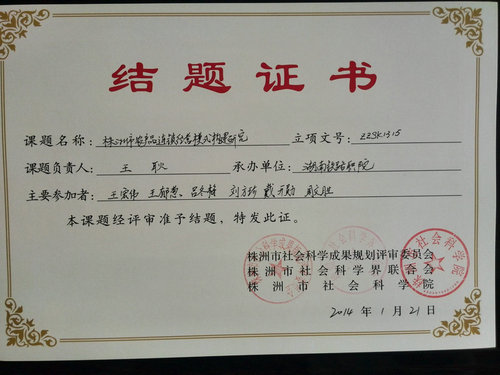 结题证书
课题名称：株洲市农产品连锁经营模式构建研究 立项文号：ZZSK1315
课题负责人：王耿 承办单位：湖南铁路职院
主要参加者：王宏伟 刘方 周文胜
本课题经评审准予结题，特发此证。
株洲市社会科学成果规划评审委员会
株洲市社会科学界联合会
株洲市社会科学院
2014年1月21日